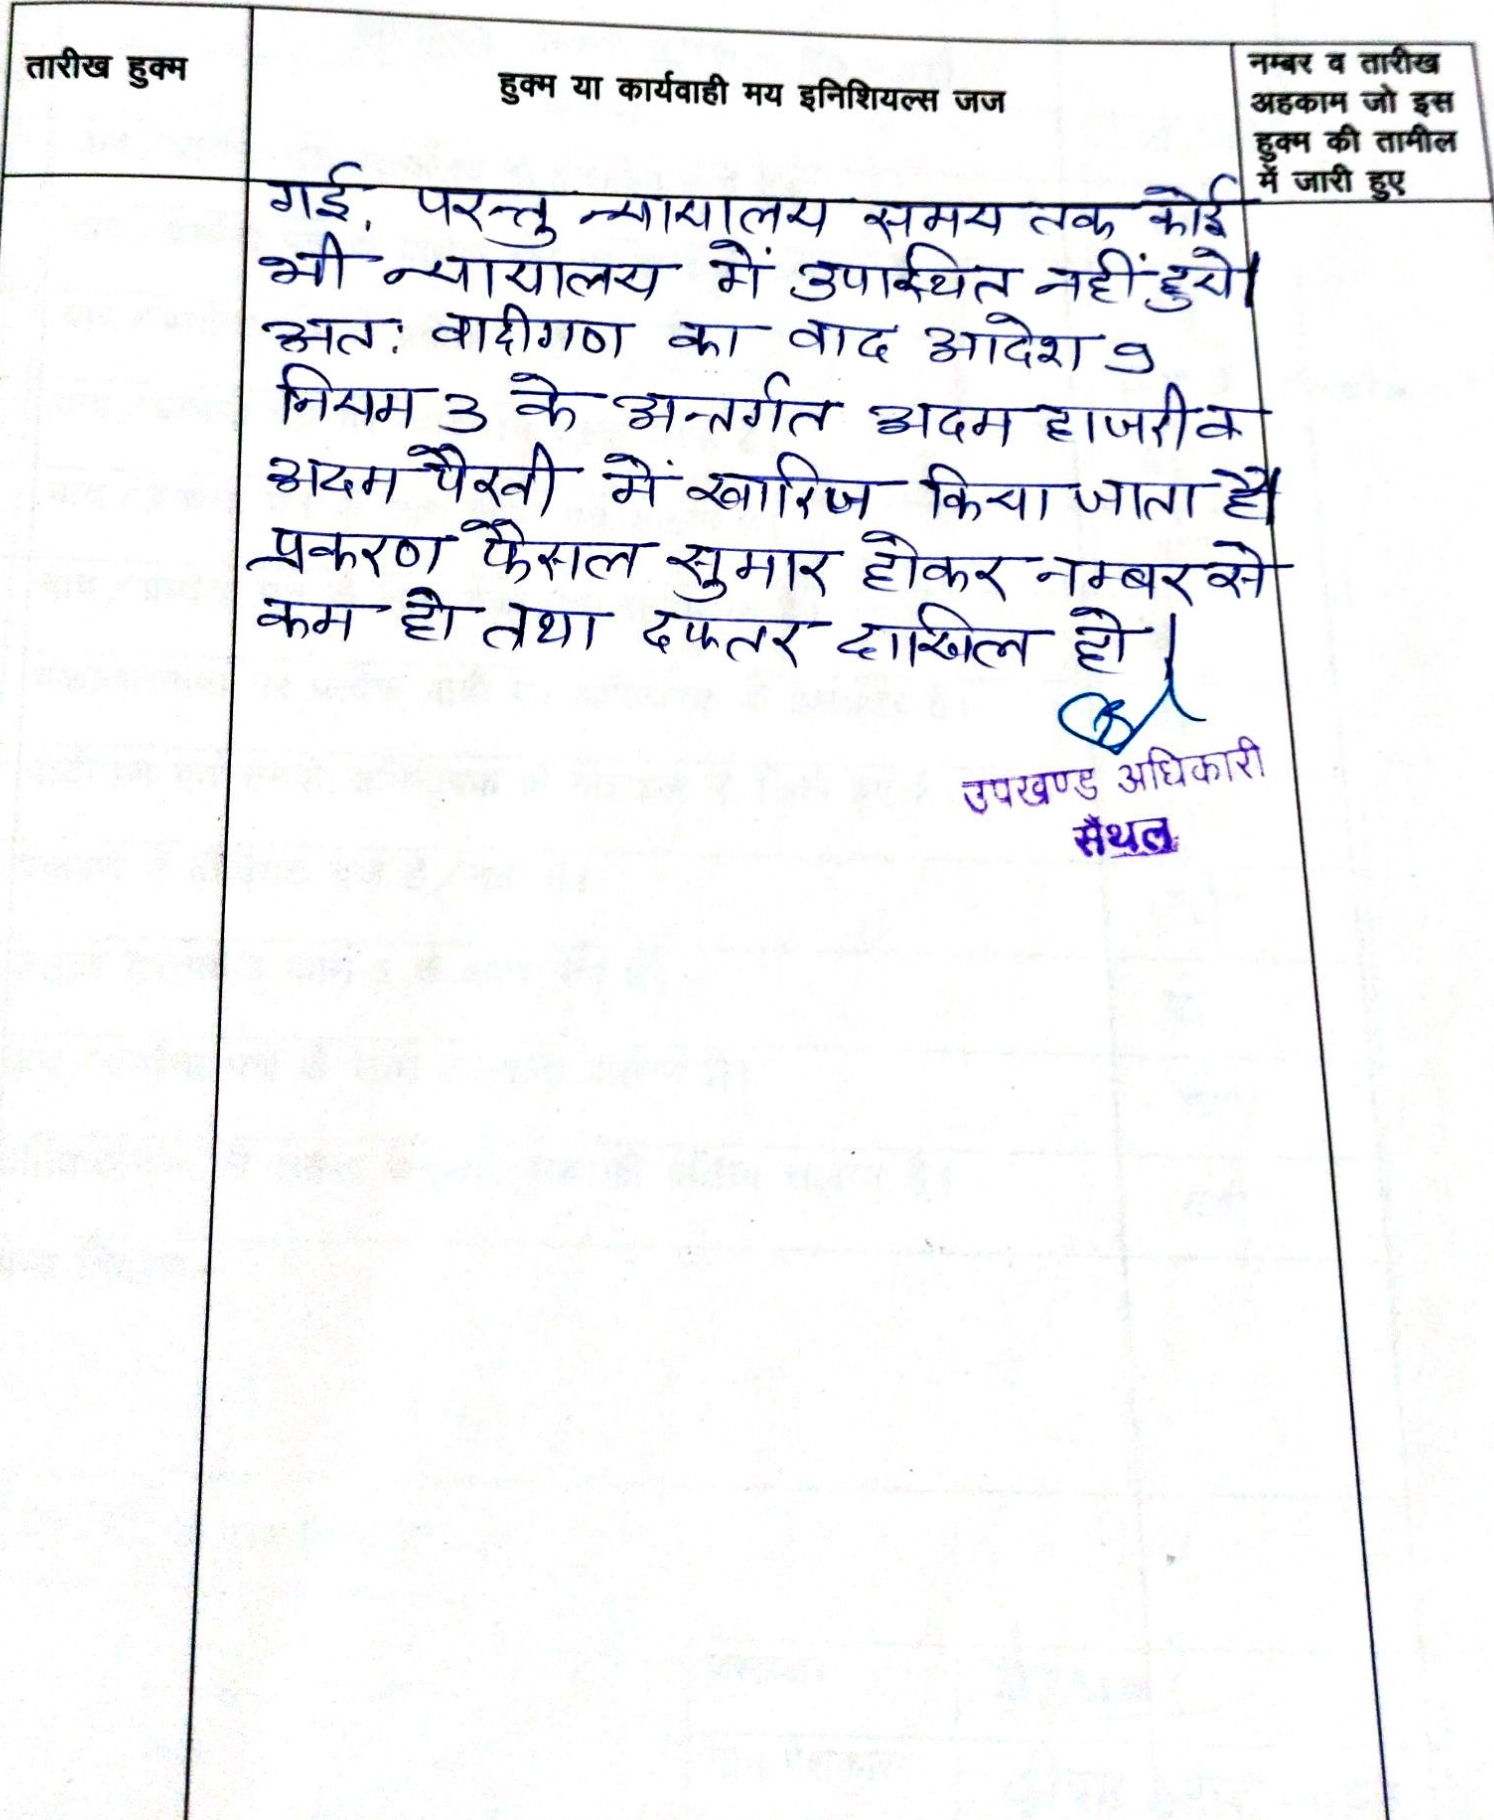 तारीख हुक्म
हुक्म या कार्यवाही मय इनिशियल्स जज
नम्बर व तारीख
अहकाम जो इस
हुक्म की तामील
में जारी हुए
गई, परन्तु न्यायालय समय तक कोई
भी न्यायालय में उपस्थित नहीं हुये।
अतः वादीगण का वाद आदेश 9
नियम 3 के अन्तर्गत अदम हाजरी व
अदम पैरवी में खारिज किया जाता है।
प्रकरण फैसल सुमार होकर नम्बर से
कम हो तथा दफ्तर दाखिल हो।
उपखण्ड अधिकारी
सैंथल